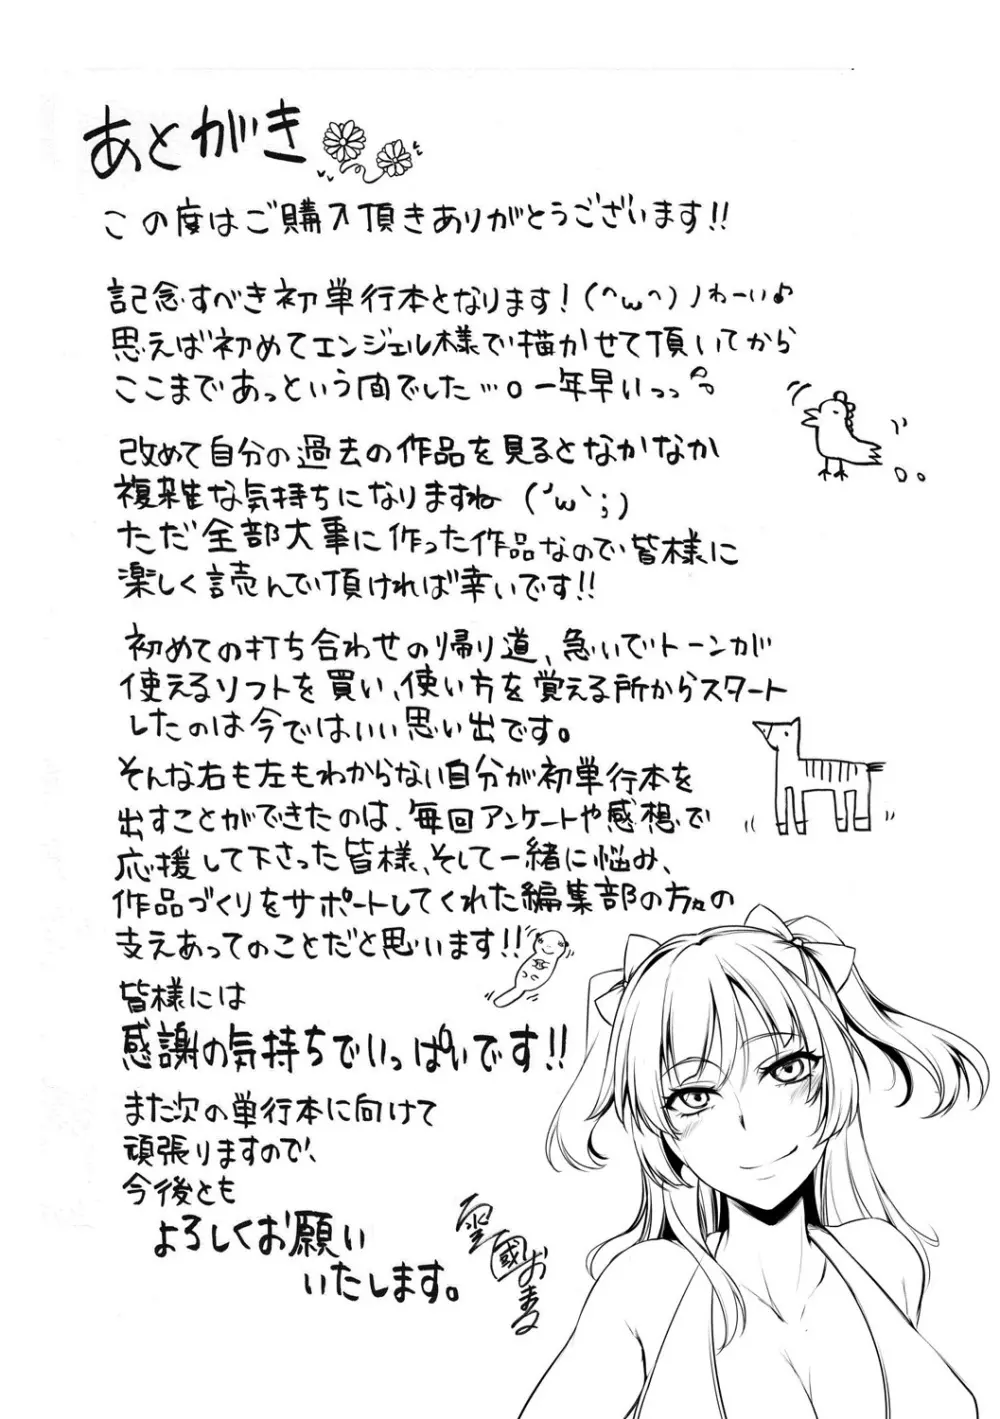 あとがき
この度はご購入頂きありがとうございます!!
記念すべき初単行本となります!(^ω^)ノわーい♪
思えば初めてエンジェル様で描かせて頂いてから
ここまであっという間でした…。一年早いっっ
改めて自分の過去の作品を見るとなかなか
複雑な気持ちになりますね(´ω`;)
ただ全部大事に作った作品なので皆様に
楽しく読んで頂ければ幸いです!!
初めての打ち合わせの帰り道、急いでトーンが
使えるソフトを買い、使い方を覚える所からスタート
したのは今ではいい思い出です。
そんな右も左もわからない自分が初単行本を
出すことができたのは、毎回アンケートや感想で
応援して下さった皆様、そして一緒に悩み、
作品づくりをサポートしてくれた編集部の方々の
支えあってのことだと思います!!
皆様には
感謝の気持ちでいっぱいです!!
また次の単行本に向けて
頑張りますので、
今後とも
よろしくお願い
いたします。
國おまる